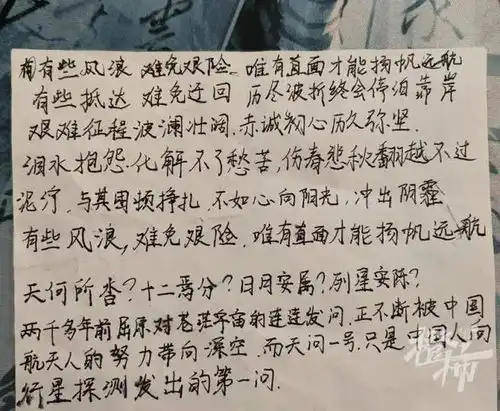 有些风浪 难免艰险 唯有直面才能扬帆远航
有些抵达 难免迂回 历尽波折终会停泊靠岸
艰难征程波澜壮阔,赤诚初心历久弥坚.
泪水抱怨化解不了愁苦,伤春悲秋翻越不过
泥泞.与其困顿挣扎.不如心向阳光,冲出阴霾
有些风浪,难免艰险.唯有直面才能扬帆远航
天何所沓?十二焉分?日月安属?列星安陈?
两千多年前屈原对苍茫宇宙的连连发问.正不断被中国
航天人的努力带向深空.而天问一号.只是中国人向
行星探测发出的第一问.
橙柿